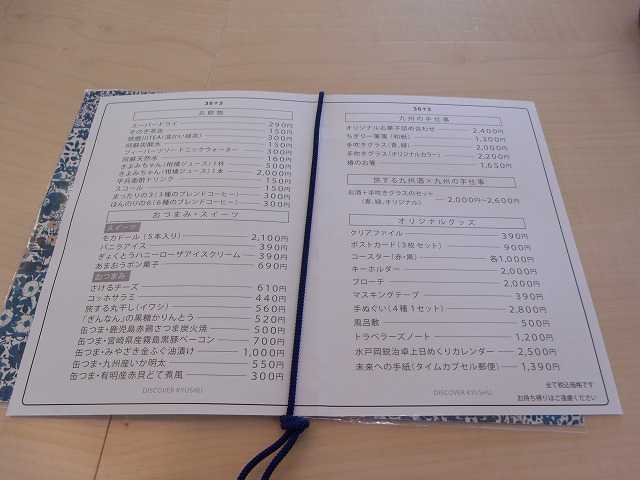 36+3
お飲物
スーパードライ 290円
そのぎ茶缶 150円
快燃! 150円
阿蘇炭酸水 150円
フィーバーツリー トニックウォーター 300円
阿蘇天然水 160円
きよみちゃん(柑橘ジュース)1杯 500円
きよみちゃん(柑橘ジュース)1本 2,000円
宇兵衛梅ドリンク 150円
スコール 150円
まったりの3(3種のブレンドコーヒー) 300円
ほんのりの6(6種のブレンドコーヒー) 300円
おつまみ・スイーツ
スイーツ
モカドール(5本入り) 2,100円
バニラアイス 390円
ぎょくとうハニーローザアイスクリーム 390円
あまおうポン菓子 690円
おつまみ
さけるチーズ 610円
コッホサラミ 440円
旅する丸干し(イワシ) 560円
「ぎんなん」の黒糖かりんとう 520円
缶つま・鹿児島赤鶏さつま炭火焼 500円
缶つま・宮崎県産霧島黒豚ベーコン 700円
缶つま・みやざき金ふぐ油漬け 1,000円
缶つま・九州産いか明太 550円
缶つま・有明産赤貝どて煮風 300円
DISCOVER KYUSHU
36+3
九州の手仕事
オリジナルお菓子詰め合わせ 2,400円
ちぎり一筆箋(和紙) 1,300円
手吹きグラス(青,緑) 2,000円
手吹きグラス(オリジナルカラー) 2,200円
椿のお箸 1,650円
旅する九州酒×九州の手仕事
お酒+手吹きグラスのセット
(青,緑,オリジナル) 2,000円~2,600円
オリジナルグッズ
クリアファイル 390円
ポストカード(3枚セット) 900円
コースター(赤・黒) 各1,000円
キーホルダー 2,000円
ブローチ 2,000円
マスキングテープ 390円
手ぬぐい(4種1セット) 2,800円
風呂敷 500円
トラベラーズノート 1,200円
水戸岡鋭治卓上日めくりカレンダー 2,500円
未来への手紙(タイムカプセル郵便) 1,390円
全て税込価格です
お持ち帰りはご遠慮ください
DISCOVER KYUSHU